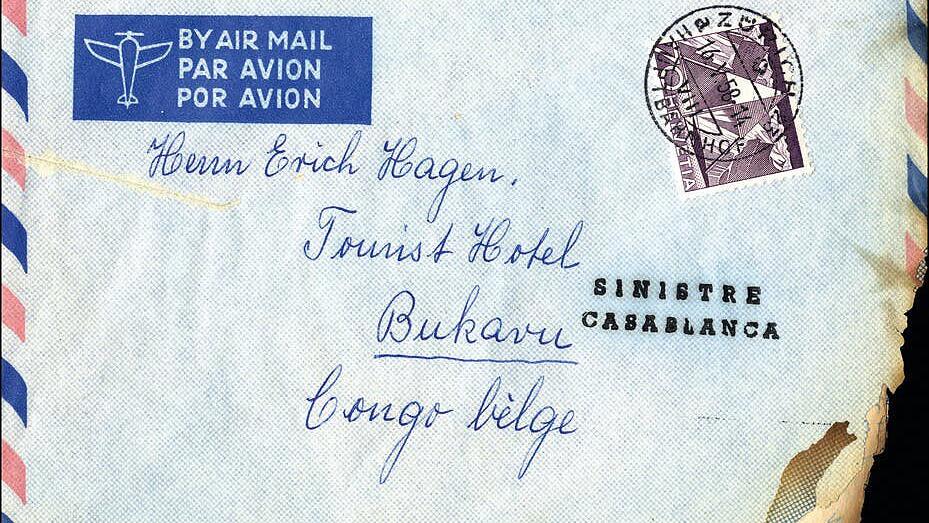 BY AIR MAIL
PAR AVION
POR AVION
ZÜRICH
Herrn Erich Hagen.
Tourist Hotel
Bukavu
Congo bèlge
SINISTRE
CASABLANCA